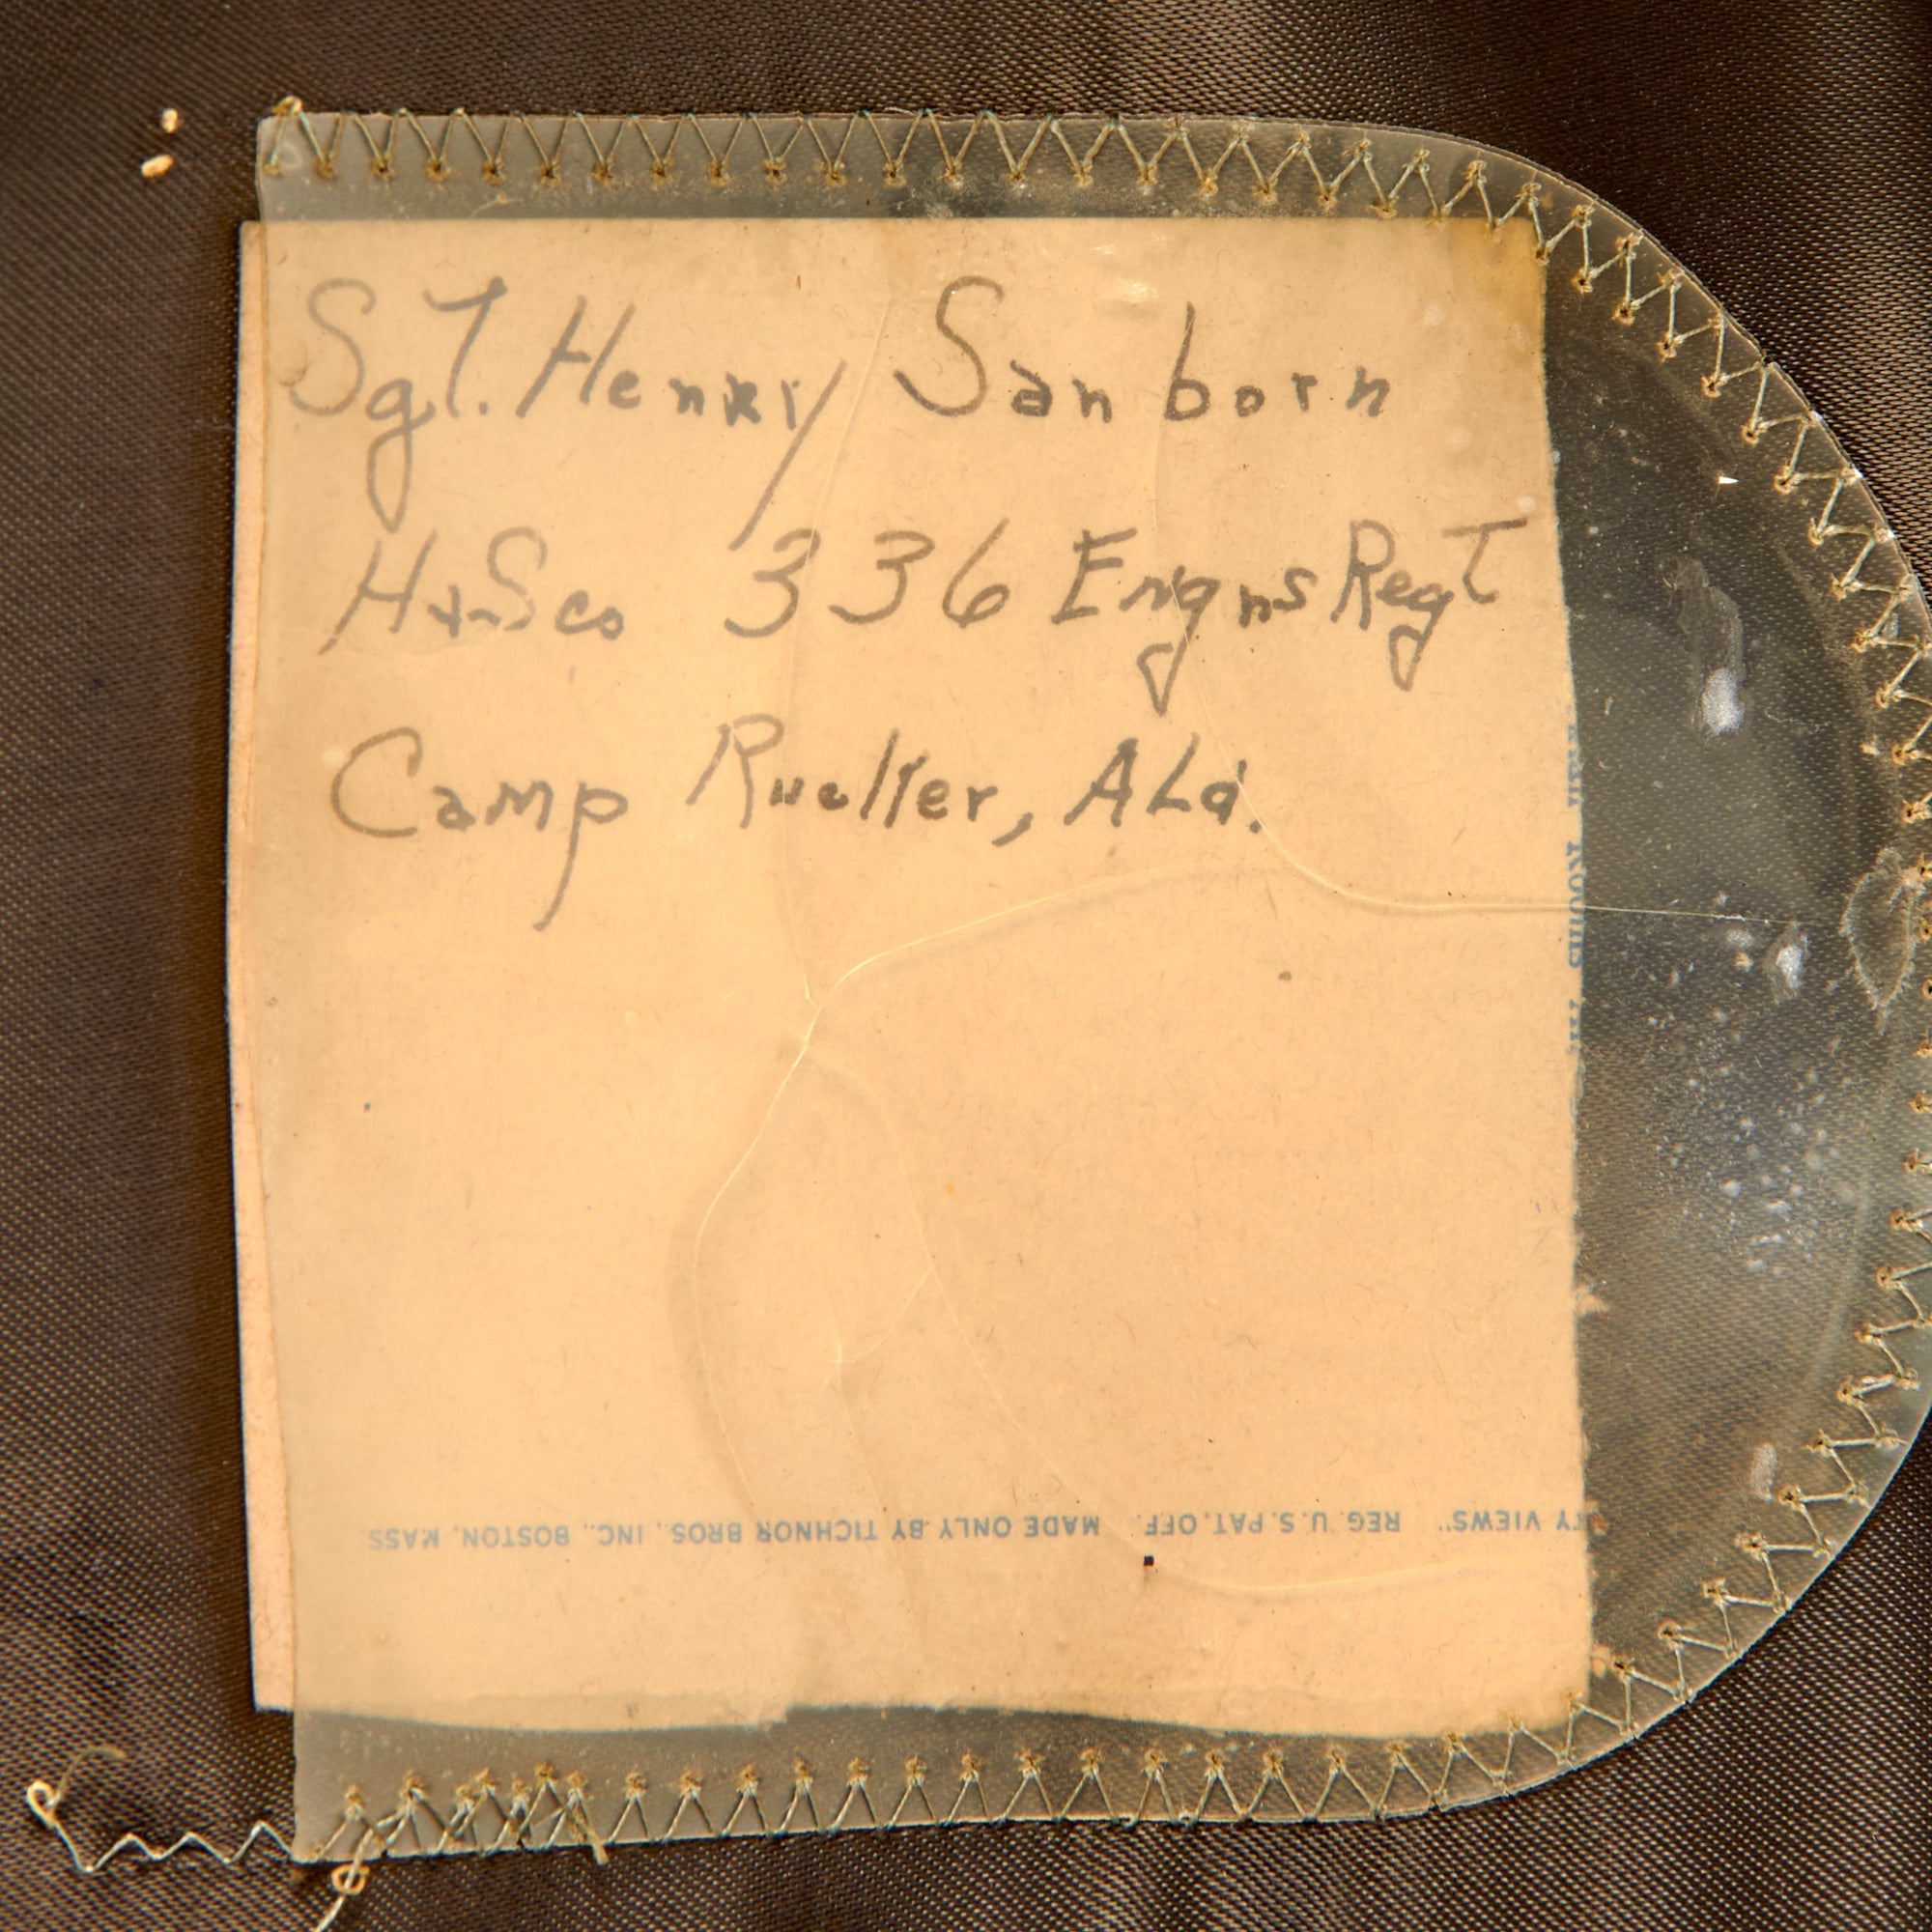 Sgt. Henry Sanborn
H+S co 336 Engns Regt
Camp Rucker, ALa.
TY VIEWS" REG. U.S. PAT. OFF. MADE ONLY BY TICHNOR BROS., INC., BOSTON, MASS.